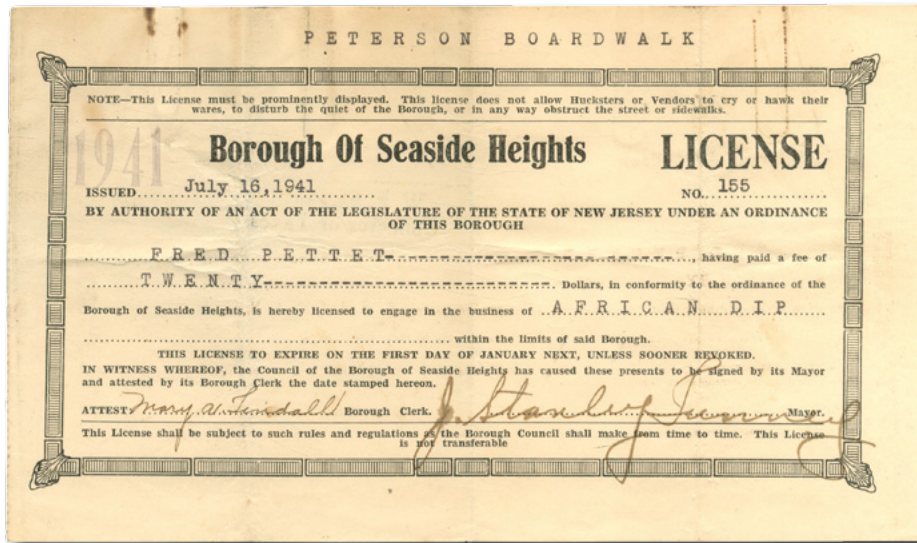 PETERSON BOARDWALK
NOTE—This License must be prominently displayed. This license does not allow Hucksters or Vendors to cry or hawk their
wares, to disturb the quiet of the Borough, or in any way obstruct the street or sidewalks.
1941
Borough Of Seaside Heights LICENSE
ISSUED July 16, 1941 NO. 155
BY AUTHORITY OF AN ACT OF THE LEGISLATURE OF THE STATE OF NEW JERSEY UNDER AN ORDINANCE
OF THIS BOROUGH
FRED PETTET, having paid a fee of
TWENTY Dollars, in conformity to the ordinance of the
Borough of Seaside Heights, is hereby licensed to engage in the business of AFRICAN DIP
within the limits of said Borough.
THIS LICENSE TO EXPIRE ON THE FIRST DAY OF JANUARY NEXT, UNLESS SOONER REVOKED.
IN WITNESS WHEREOF, the Council of the Borough of Seaside Heights has caused these presents to be signed by its Mayor
and attested by its Borough Clerk the date stamped hereon.
ATTEST: Mary V. Tindall Borough Clerk. J. Stanley Tunney Mayor.
This License shall be subject to such rules and regulations as the Borough Council shall make from time to time. This License
is not transferable